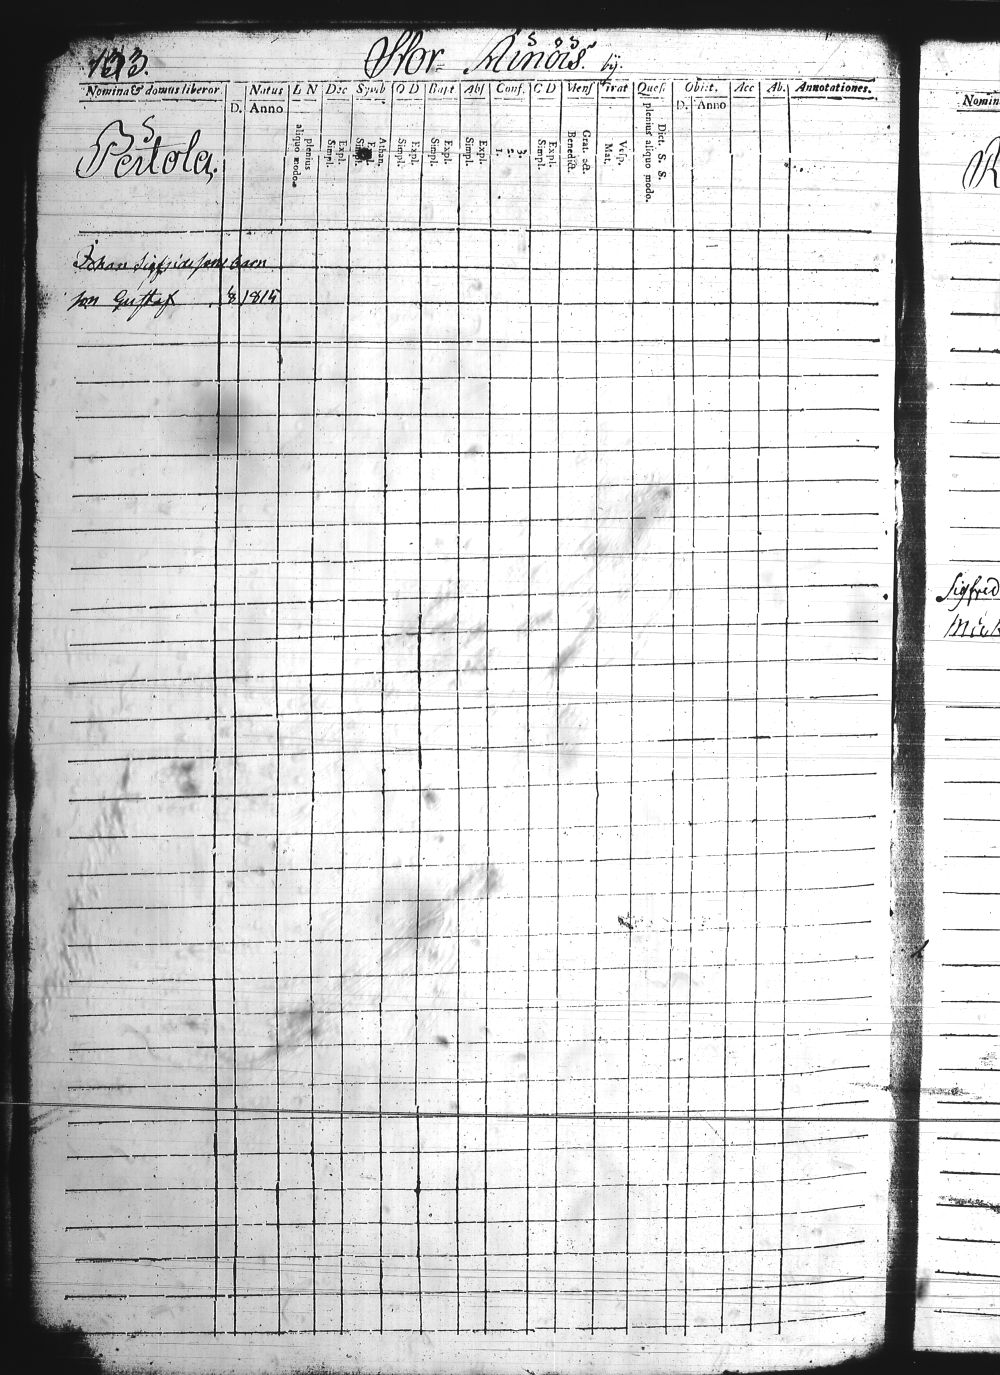 133.
Stor Ainois by.
Nomina & domus liberor. Natus L N Dec Symb O D Bapt Abs Conf. C D Mens Orat Quest. Obiit. Acc Ab. Annotationes.
D. Anno D. Anno
plenius aliquo modo. Expl. Simpl. Athan. Expl. Simpl. Expl. Simpl. Expl. Simpl. Expl. Simpl. 3. 2. 1. Expl. Simpl. Grat. act. Benedict. Vesp. Mat. Dict. S. S. plenius aliquo modo.
Pertola,
Johan Sigfridssons barn
son Gustaf 8 1815
Nomin
Sigfred
Mick